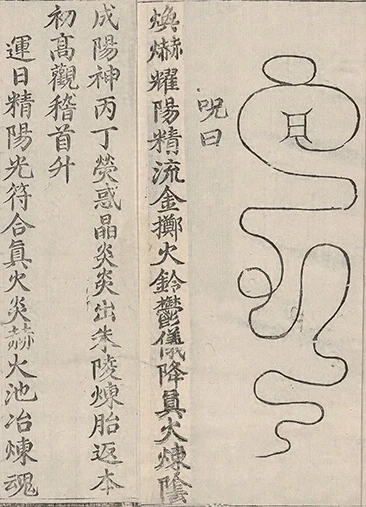 呪曰
煥爀耀陽精流金擲火鈴鬱儀降眞火煉陰
成陽神丙丁熒惑晶炎炎出朱陵煉胎返本
初高觀稽首升
運日精陽光符合眞火炎赫火池冶煉魂